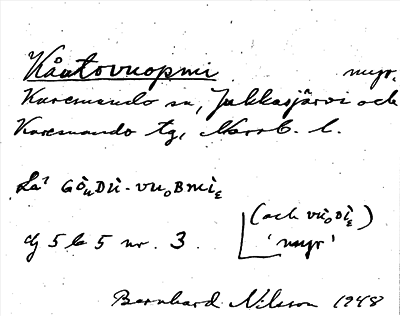 Kåutovuopmi myr.
Karesuando sn, Jukkasjärvi och
Karesuando tg, Norrb. l.
La? GòuDù-vuoBmiε
(och vùoDiε)
'myr'
dj 5 b 5 nr. 3.
Bernhard Nilsson 1948